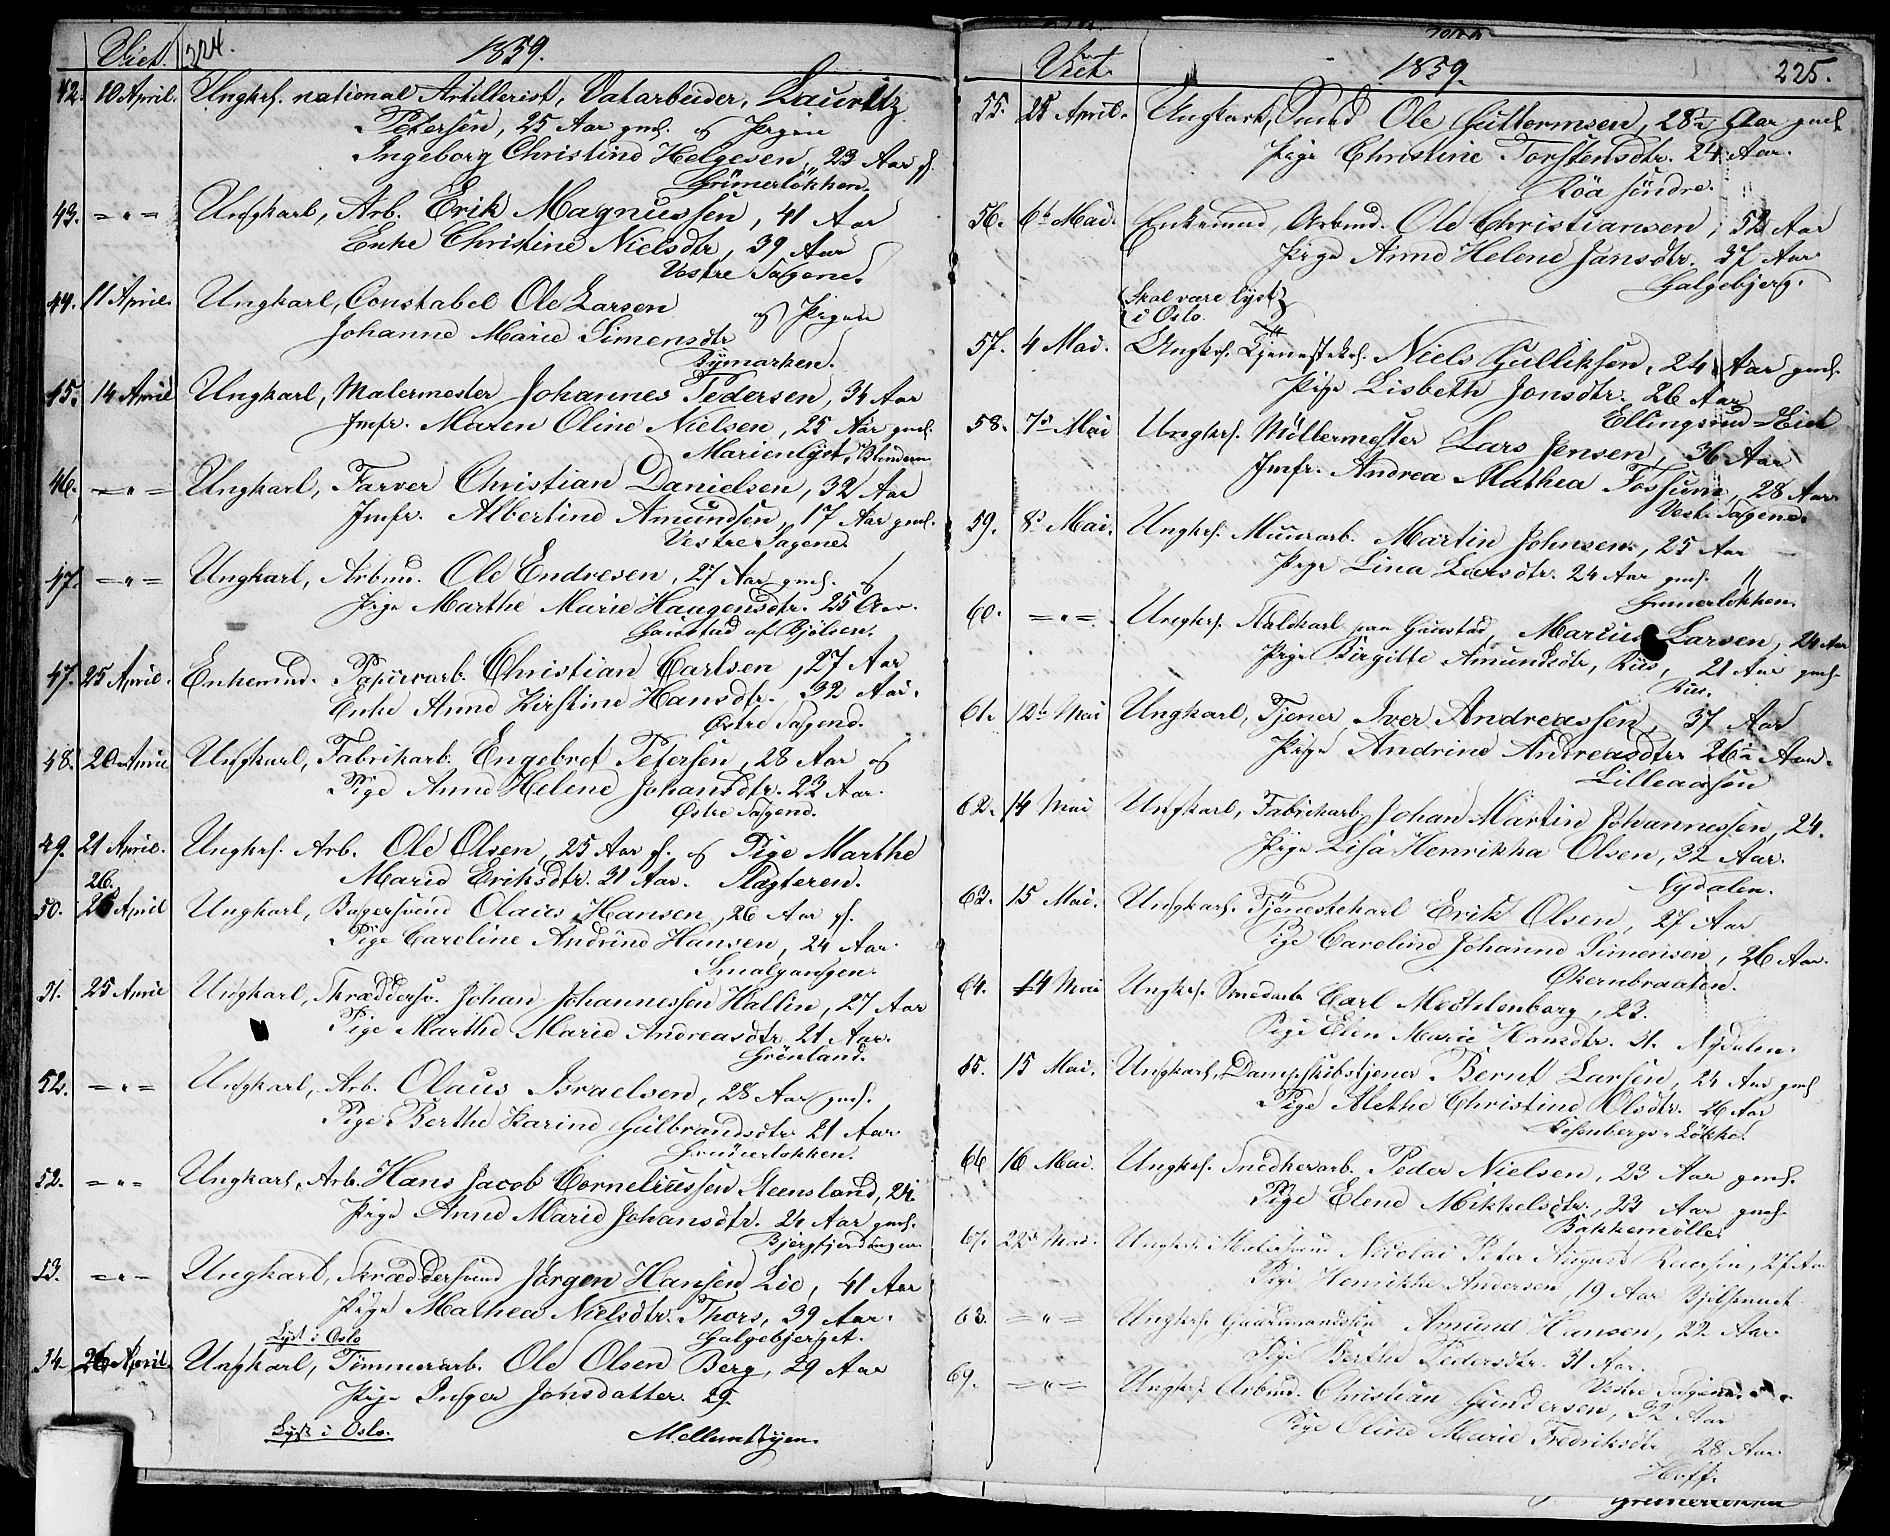 Viet. 224. 1859.
42. 10 April. Ungkrl. national Artillerist, Vatarbeider, Lauritz
Petersen, 25 Aar gml. og Pigen
Ingeborg Christine Helgesen, 23 Aar gl.
Grünerløkken.
43. — " — Ungkarl, Arb. Erik Magnussen, 41 Aar
Enke Christine Nielsdtr, 39 Aar
Vestre Sagene.
44. 11 April. Ungkarl, Constabel Ole Larsen
og Pigen
Johanne Marie Simensdtr
Bymarken.
45. 14 April Ungkarl, Malermester Johannes Pedersen, 34 Aar
Jmfr. Maren Oline Nielsen, 25 Aar gml.
Marienlyst, Blindern
46. — " — Ungkarl, Farver Christian Danielsen, 32 Aar
Jmfr. Albertine Amundsen, 17 Aar gml.
Vestre Sagene.
47. — " — Ungkarl, Arbmd. Ole Endresen, 27 Aar gml. og
Pige Marthe Marie Haugensdtr. 25 Aar.
Gaustad af Bjølsen.
47. 25 April. Enkemnd. Papirarb. Christian Carlsen, 27 Aar
Enke Anne Kirstine Hansdtr. 32 Aar.
Østre Sagene.
48. 20 April Ungkarl, Fabrikarb. Engebret Petersen, 28 Aar og
Pige Anne Helene Johansdtr. 22 Aar.
Østre Sagene.
49. 21 April. Ungkrl. Arb. Ole Olsen, 25 Aar gl. og Pige Marthe
Marie Eriksdtr. 31 Aar. Slagteren.
26.
50. April Ungkarl, Bagersvend Olaus Hansen, 26 Aar gl.
Pige Caroline Andrine Hansen, 24 Aar.
Smalgangen.
51. 25 April Ungkarl, Skræddersv. Johan Johannessen Hallin, 27 Aar
Pige Marthe Marie Andreasdtr. 21 Aar.
Grønland.
52. — " — Ungkarl, Arb. Olaus Israelsen, 28 Aar gml.
Pige Berthe Karine Gulbrandsdtr. 21 Aar
Grünerløkken.
52. — " — Ungkarl, Arb. Hans Jacob Corneliussen Steensland, 24.
Pige Anne Marie Johansdtr. 24 Aar gml.
53. — " — Ungkarl, Skræddersvend Jörgen Hansen Lie, 41 Aar
Pige Mathea Nielsdtr. Thors, 39 Aar.
Lyst i Oslo Galgebjerget.
54. 26 April. Ungkarl, Tømmerarb. Ole Olsen Berg, 29 Aar
Pige Inger Johsdatter 29.
Lyst i Oslo. Mellembyen.
Viet. 1859. 225.
55. 25 April. Ungkarl, Ole Guttormsen, 28½ Aar gml
Pige Christine Torstensdtr. 24 Aar.
Röa söndre.
56. 6te Mai. Enkemnd, Arbmd. Ole Christiansen, 52 Aar
Pige Anne Helene Jansdtr. 37 Aar
Galgebjerg.
Skal være lyst
i Oslo.
57. 4 Mai. Ungkrl. Tjenestekrl. Niels Gulliksen, 24 Aar gml.
Pige Lisbeth Jonsdtr. 26 Aar
Ellingsrud Eiet
58. 7de Mai Ungkrl. Møllermester Lars Jensen, 36 Aar
Jmfr. Andrea Mathea Fossum, 28 Aar
Vest. Sagene.
59. 8de Mai. Ungkrl. Muurarb. Martin Johnsen, 25 Aar
Pige Lina Larsdtr. 24 Aar gml.
Grünerløkken.
60. — " — Ungkrl. Staldkarl paa Gaustad, Marius Larsen, 24 Aar
Pige Birgitte Amundsdtr, Riis, 21 Aar gml.
Riis.
61. 12te Mai Ungkarl, Tjener Iver Andreassen, 37 Aar
Pige Andrine Andreasdtr 26½ Aar.
Lilleaasen
62. 14 Mai Ungkarl, Fabrikarb. Johan Martin Johannessen, 24.
Pige Lisa Henrikka Olsen, 32 Aar.
Nydalen.
63. 15 Mai. Ungkarl. Tjenestekarl Erik Olsen, 27 Aar
Pige Caroline Johanne Simensen, 26 Aar.
Økernbraaten.
64. 14 Mai Ungkrl. Smedarb Carl Mechlenborg, 23.
Pige Elen Marie Hansdtr. 21. Nydalen.
65. 15 Mai. Ungkarl, Dampskibstjener Bernt Larsen, 24 Aar gml
Pige Alethe Christine Olsdtr. 26 Aar
Rosenbergs Løkke.
66 16 Mai. Ungkrl. Snedkerarb. Peder Nielsen, 23 Aar gml.
Pige Elene Mikkelsdtr., 23 Aar gml.
Bakkemølle
67. 22de Mai. Ungkrl. Malersvend Nicolai Peter August, 27 Aar
Pige Henrikke Andersen, 19 Aar
68. — " — Ungkrl. Amund Hansen, 22 Aar.
Pige Berthe Pedersdtr. 31 Aar.
Vestre Sagene
69. — " — Ungkrl. Arbmd. Christian Gundersen, 32 Aar
Pige Oline Marie Fredriksdtr, 28 Aar
Hoff.